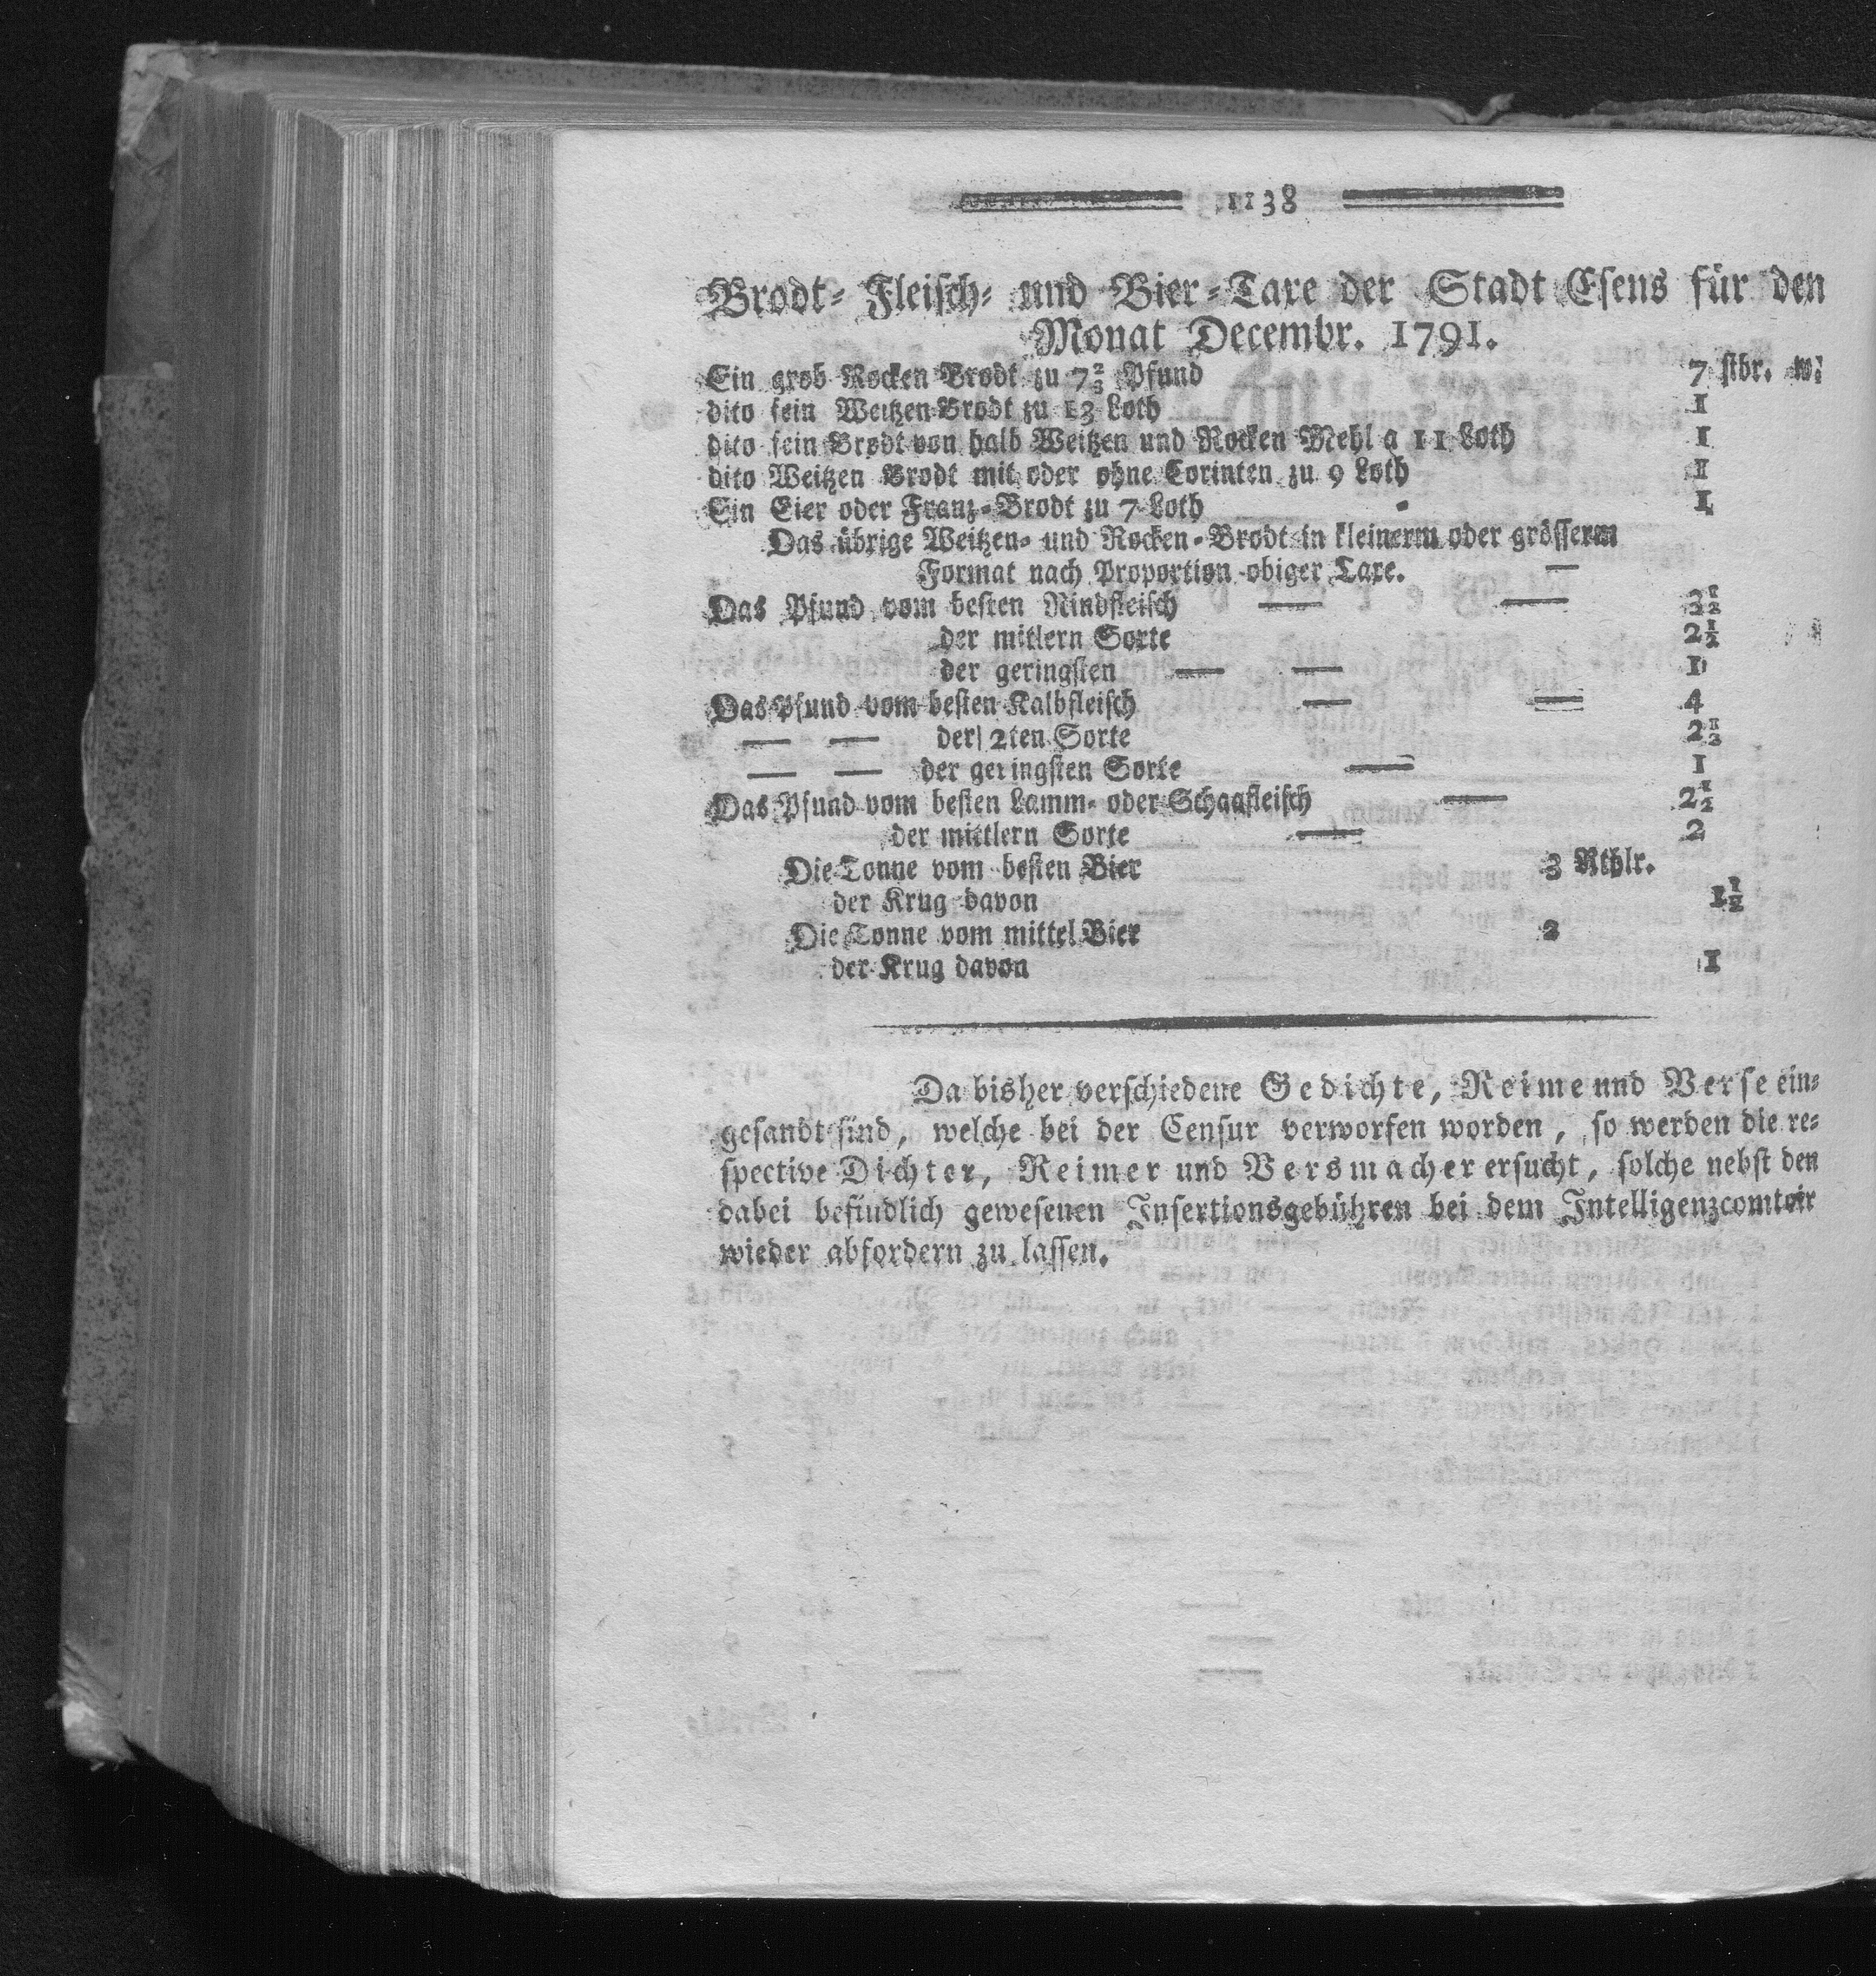 1138
Brodt- Fleisch- und Bier-Taxe der Stadt Esens für den
Monat Decembr. 1791.
Ein grob Rocken Brodt zu 7⅔ Pfund 7 stbr. w.
dito fein Weitzen Brodt zu 13 Loth 1
dito fein Brodt von halb Weitzen und Rocken Mehl a 11 Loth 1
dito Weitzen Brodt mit oder ohne Corinten zu 9 Loth 1
Ein Eier oder Franz-Brodt zu 7 Loth 1
Das übrige Weitzen- und Rocken-Brodt in kleinerm oder grösserem
Format nach Proportion obiger Taxe. —
Das Pfund vom besten Rindfleisch — — 3½
der mitlern Sorte 2½
der geringsten — — 1
Das Pfund vom besten Kalbfleisch — — 4
— — der 2ten Sorte
— — der geringsten Sorte — 1
Das Pfund vom besten Lamm- oder Schaafleisch — 2½
der mittlern Sorte — 2
Die Tonne vom besten Bier 3 Rthlr.
der Krug davon 1½
Die Tonne vom mittel Bier 2
der Krug davon 1
Da bisher verschiedene Gedichte, Reime und Verse ein-
gesandt sind, welche bei der Censur verworfen worden, so werden die re-
spective Dichter, Reimer und Versmacher ersucht, solche nebst den
dabei befindlich gewesenen Insertionsgebühren bei dem Intelligenzcomtoir
wieder abfordern zu lassen.